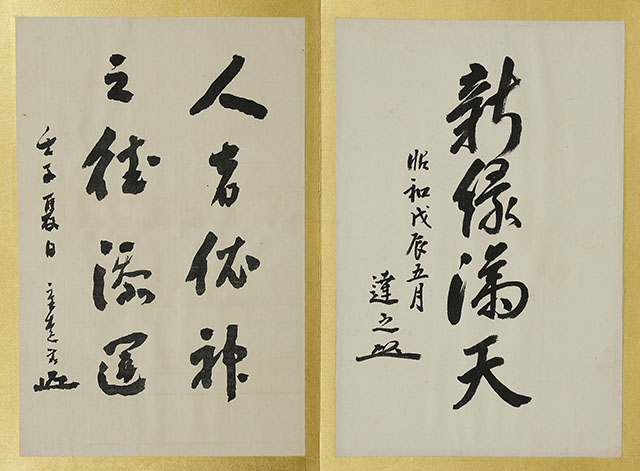 新緑満天
昭和戊辰五月
達
人者依神
之徳添運
壬子夏日